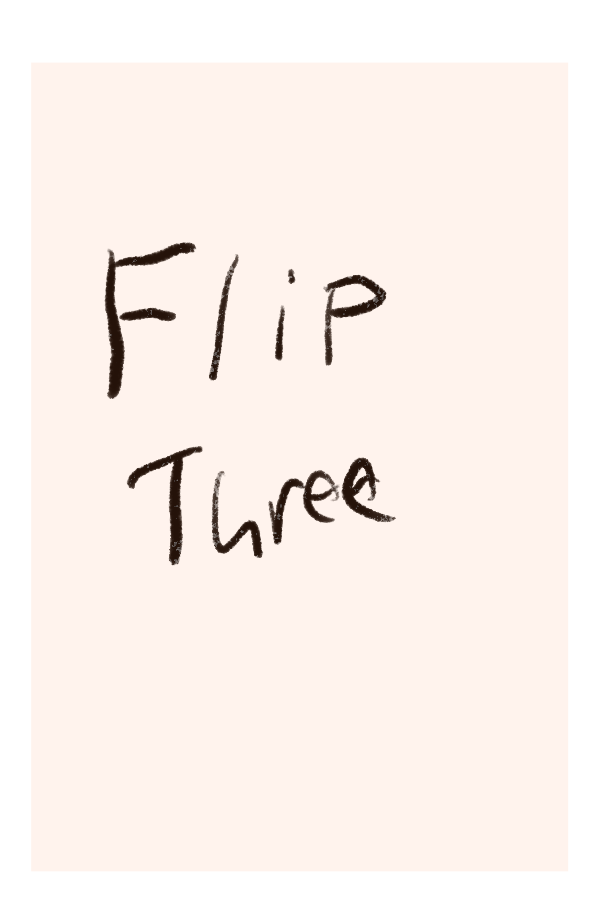 Flip
Three